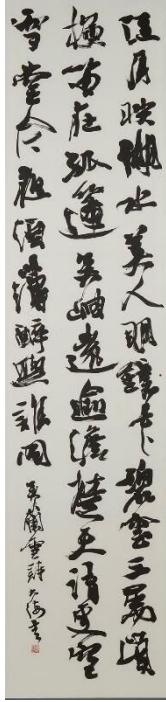 江月映湖水美人明鏡中碧雲三萬頃
橫笛在孤篷吳岫遠逾澹楚天清更空
雪堂今夜酒薄醉與誰同
吳蘭雪詩 書